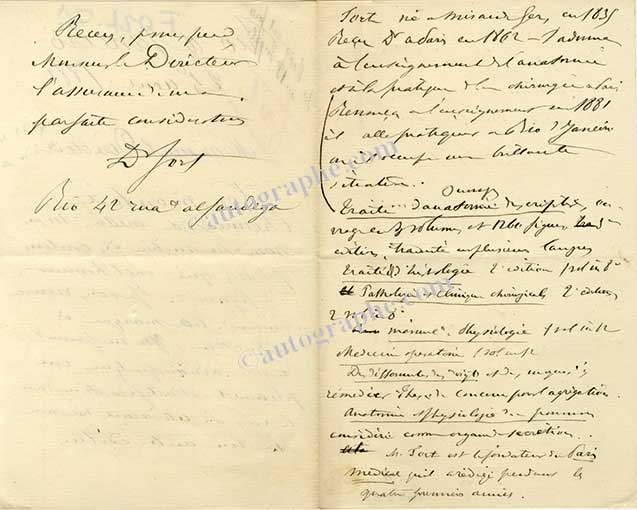 Recevez, je vous prie
Monsieur le Directeur
l'assurance de ma
parfaite considération
Dr Fort
Rio 42 rua d'alfandega
Fort né à Mirande Gers, en 1835
Reçu Dr à Paris en 1862 — s'adonna
à l'enseignement de l'anatomie
et à la pratique de la chirurgie à Paris
Renonça à l'enseignement en 1881
il alla pratiquer à Rio Janeiro
où il occupe une brillante
situation.
Ouvrages
Traité d'anatomie descriptive, en
3 volumes et 1260 figures,
édition, traduité en plusieurs langues
Traité d'histologie 2e édition 1 vol in 8°
et Pathologie et Clinique chirurgicale 2e édition,
2 vol 8°
manuel Physiologie 1 vol in 12
Médecine opératoire 1 vol in 12
Des difformités des doigts et des moyens d'y
remédier Thèse de concours pour l'agrégation.
Anatomie et physiologie du poumon
considéré comme organe de sécrétion.
M. Fort est le fondateur du Paris
Médical qu'il a rédigé pendant les
quatre premières années.
©autographe.com
©autographe.com